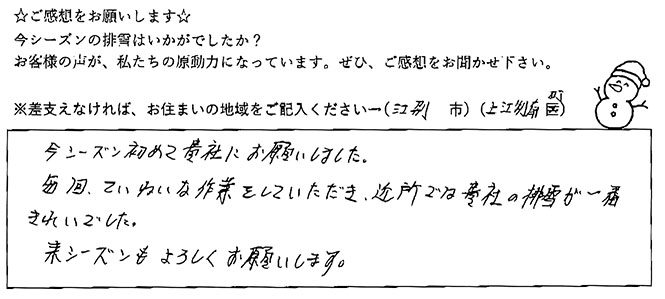 ☆ご感想をお願いします☆
今シーズンの排雪はいかがでしたか？
お客様の声が、私たちの原動力になっています。ぜひ、ご感想をお聞かせ下さい。
※差支えなければ、お住まいの地域をご記入ください→（江別　市）（上江別南町 区）
今シーズン初めて貴社にお願いしました。
毎回、ていねいな作業をしていただき、近所では貴社の排雪が一番
きれいでした。
来シーズンもよろしくお願いします。